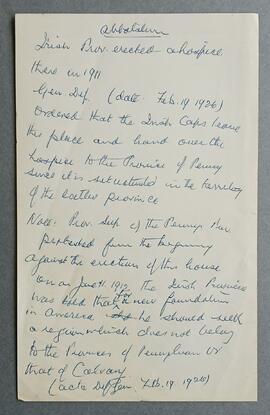 Abbotstown
Irish Prov. erected a hospice
there in 1911
Gen. Def. (date: Feb. 19 1926)
ordered that the Irish Caps leave
the place and hand over the
hospice to the Province of Penny
since it is situated in the territory
of the latter province
Note: Prov. Sup. of the Pennsy. Prov.
protested from the beginning
against the erection of this house
on June 11. 1912 the Irish Province
was told that for the new foundation
in America he should seek
a region which does not belong
to the Provinces of Pennsylvan or
that of Calvary
(acta Def Gen. Feb. 19 1926)